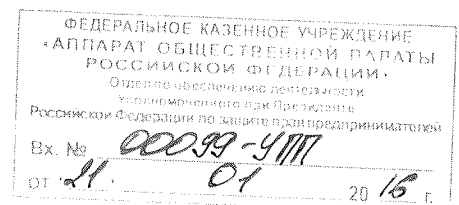 ФЕДЕРАЛЬНОЕ КАЗЕННОЕ УЧРЕЖДЕНИЕ
«АППАРАТ ОБЩЕСТВЕННОЙ ПАЛАТЫ
РОССИЙСКОЙ ФЕДЕРАЦИИ»
Отдел по обеспечению деятельности
Уполномоченного при Президенте
Российской Федерации по защите прав предпринимателей
Вх. № 00099-УПП
от 21. 01 2016 г.